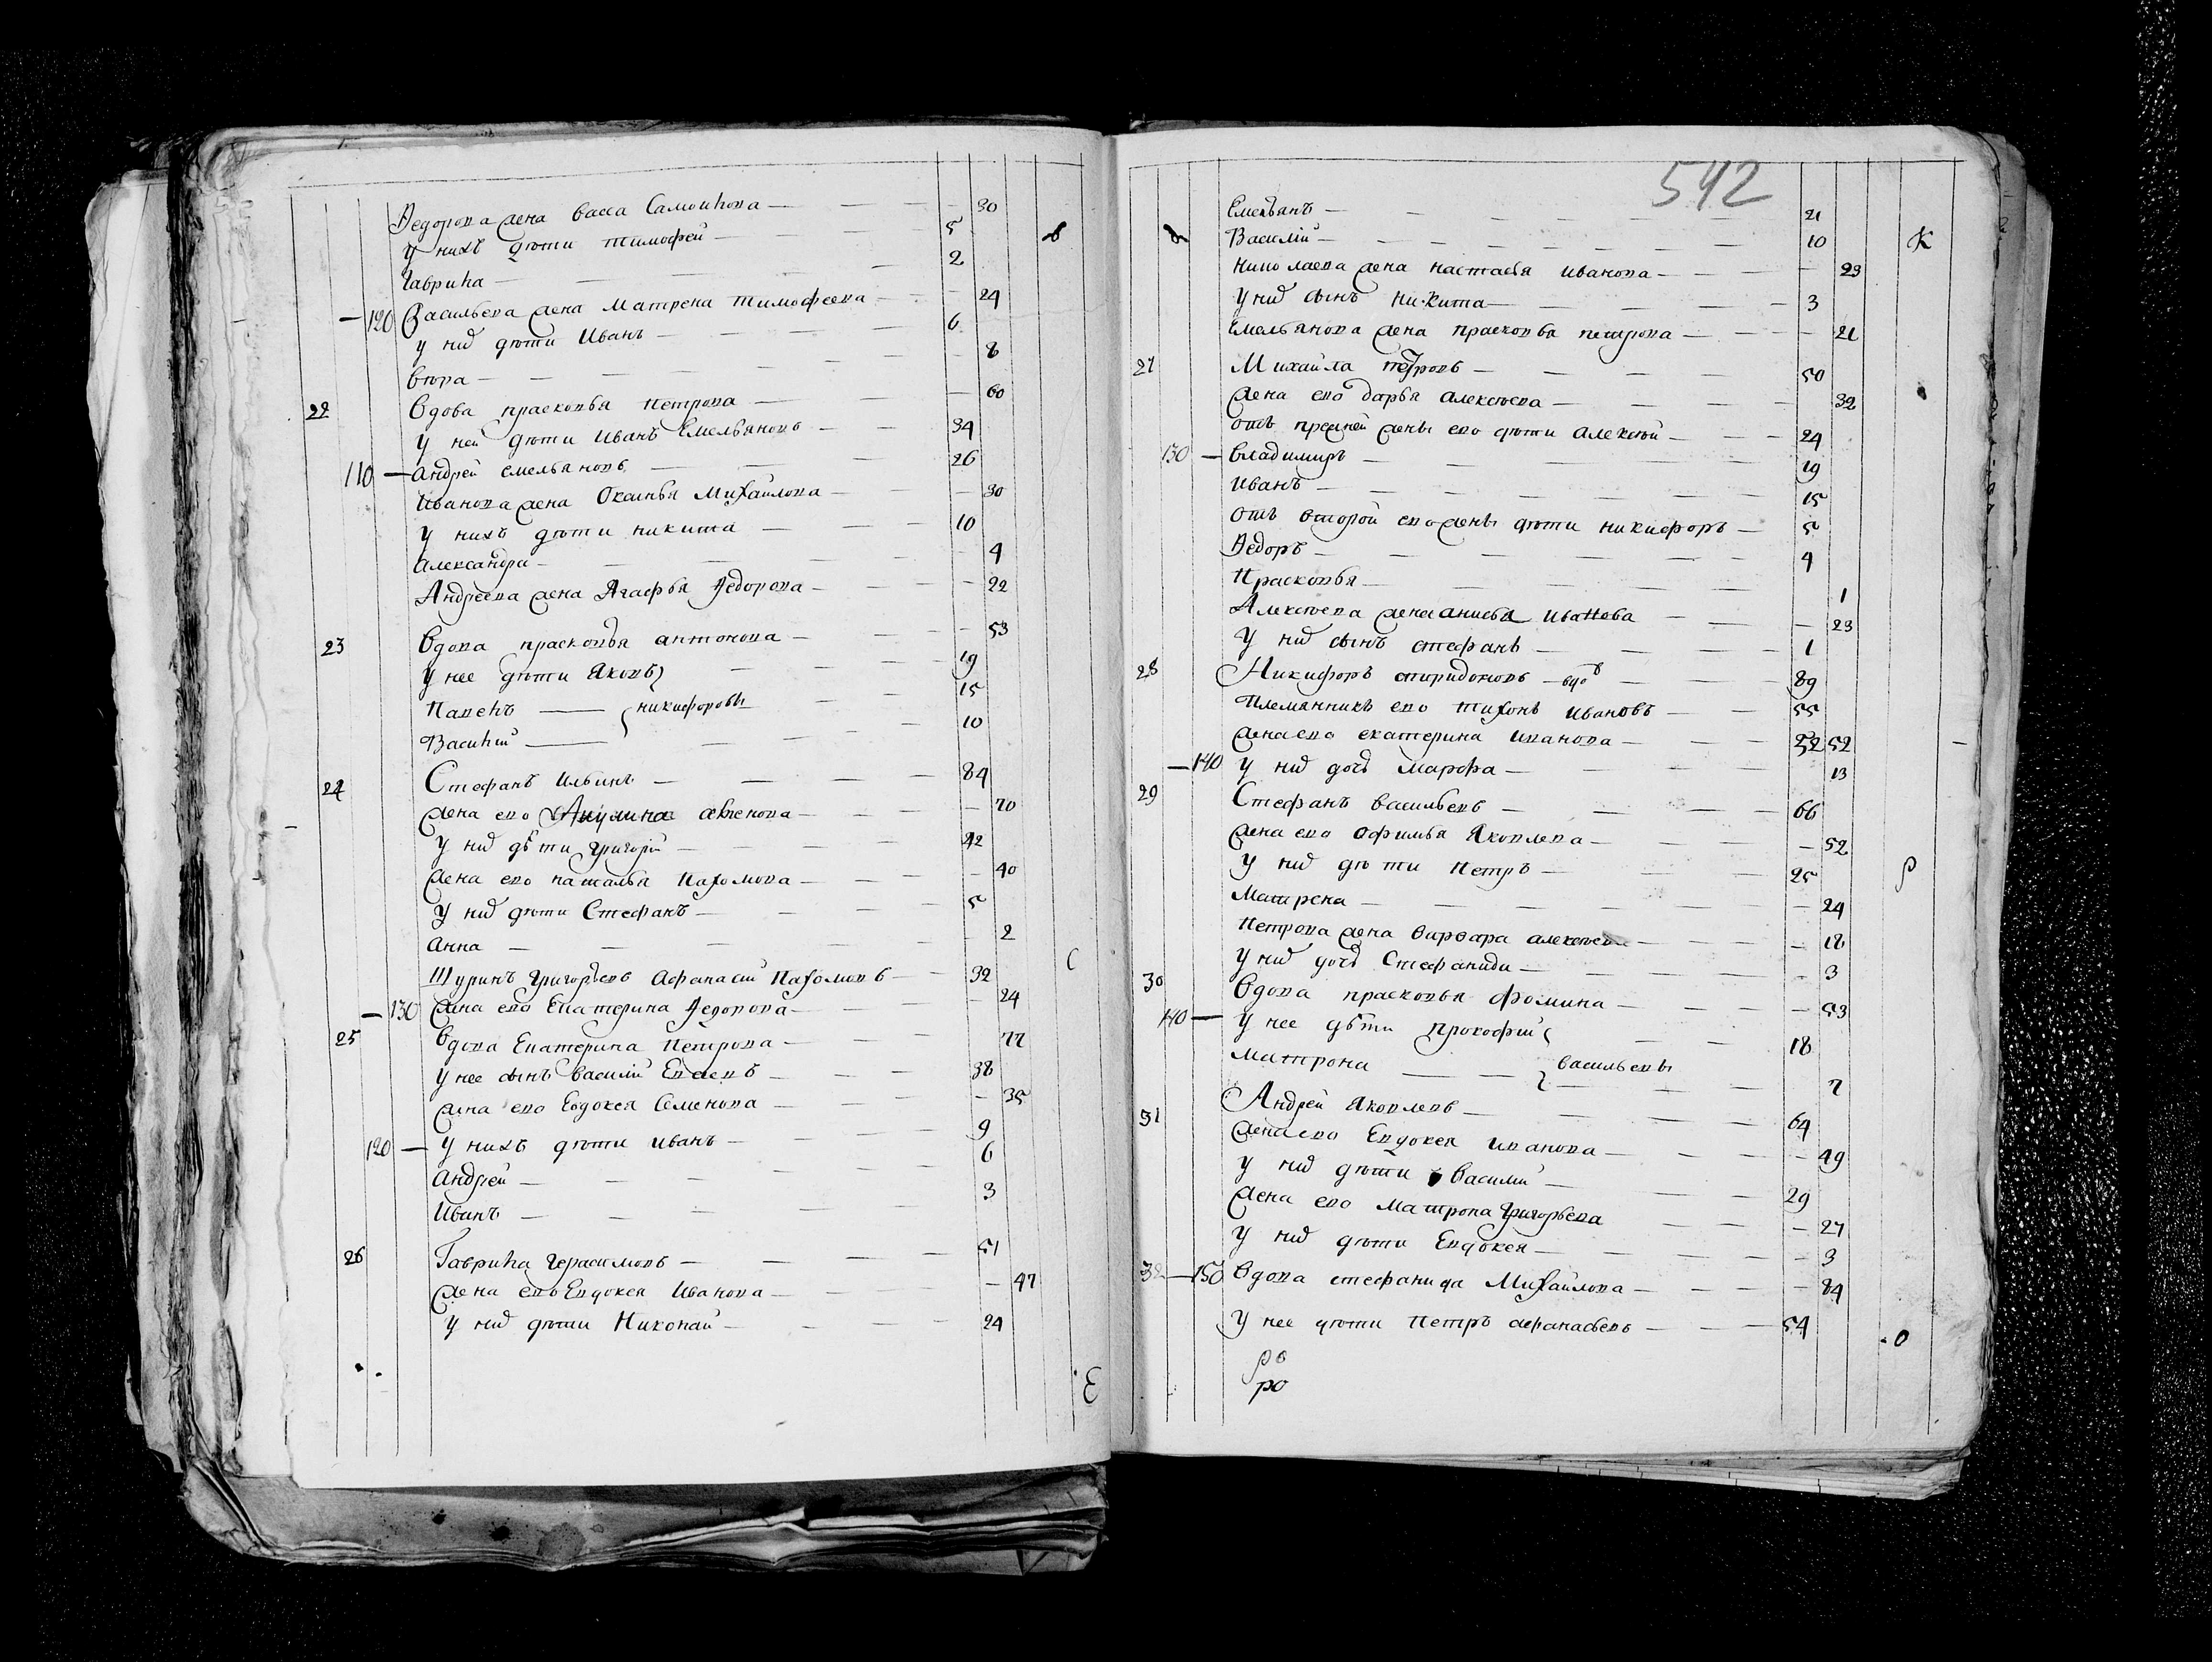 Федорова жена васса Самойлова — 30
у нихъ дѣти тимофей — 5
Гаврила — 2
— 120 Васильева жена Матрена тимофеева — 24
у них дѣти Иванъ — 6
— 8
22 вдова прасковья петрова — 60
у ней дѣти Иванъ Емельяновъ — 34
110 — андрей емельяновъ — 26
Иванова жена Михайлова — 30
у нихъ дѣти никита — 10
александра — 4
Андреева жена Агафья Федорова — 22
23 вдова прасковья антонова — 53
у нее дѣти Яковъ — 19
Павелъ — никифоровы 15
Василий — 10
24 Стефанъ Ильинъ — 84
жена ево Акулина — 70
у них дѣти григорей — 42
жена ево наталья Пахомова — 40
у них дѣти Стефанъ — 5
анна — 2
С
Шуринъ григорьевъ афанасий Пахомовъ — 32
— 130 жена ево Екатерина Федорова — 24
25 вдова Екатерина Петрова — 77
у нее сынъ василий — 38
жена ево Евдокея Семенова — 35
120 — у нихъ дѣти иванъ — 9
андрей — 6
Иванъ — 3
26 Гаврила герасимовъ — 51
жена ево Евдокея Иванова — 47
у них дѣти Николай — 24
Е
542
Емельянъ — 21
Василий — 10 К
николаева жена настасья иванова — 23
у них сынъ никита — 3
Емельянова жена прасковья петрова — 21
27 Михайла петровъ — 50
жена ево дарья алексѣева — 32
отъ прежней жены ево дѣти алексѣй — 24
130 — владимиръ — 19
иванъ — 15
отъ второй ево жены дѣти никифоръ — 5
Федоръ — 4
Прасковья — 1
Алексѣева жена анисья иванова — 23
у них сынъ стефанъ — 1
28 Никифоръ спиридоновъ — вдов — 89
Племянникъ ево тихонъ ивановъ — 55
жена ево екатерина иванова — 52 52
— 140 у них дочь марфа — 13
29 Стефанъ васильевъ — 66
жена ево офимья Яковлева — 52
у них дѣти петръ — 25 Р
Матрена — 24
Петрова жена варвара алексѣева — 18
у них дочь Стефанида — 3
30 вдова прасковья фомина — 53
140 — у нее дѣти прокофий — 18
матрона — васильевы — 7
31 Андрей Яковлевъ — 64
жена ево Евдокея иванова — 49
у них дѣти василий — 29
жена ево матрона григорьева — 27
у них дѣти Евдокея — 3
32 — 150 вдова стефанида Михайлова — 84
у нее дѣти петръ афанасьевъ — 54
О
ро
ро